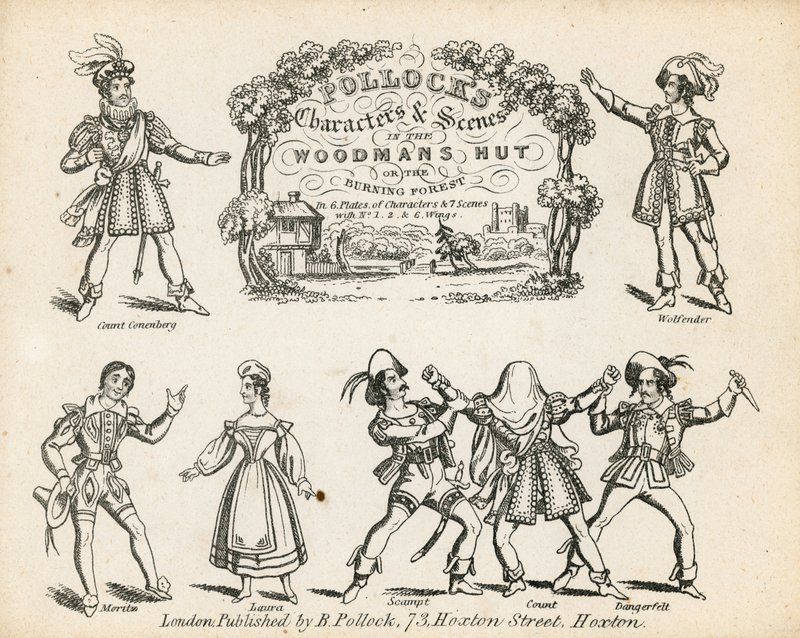 POLLOCK'S
Characters & Scenes
IN THE
WOODMANS HUT
OR THE
BURNING FOREST
In 6. Plates. of Characters & 7 Scenes
with No. 1. 2. & 6. Wings.
Count Conenberg
Wolfender
Moritz
Laura
Scampt
Count
Dangerfelt
London, Published by B. Pollock, 73, Hoxton Street, Hoxton.